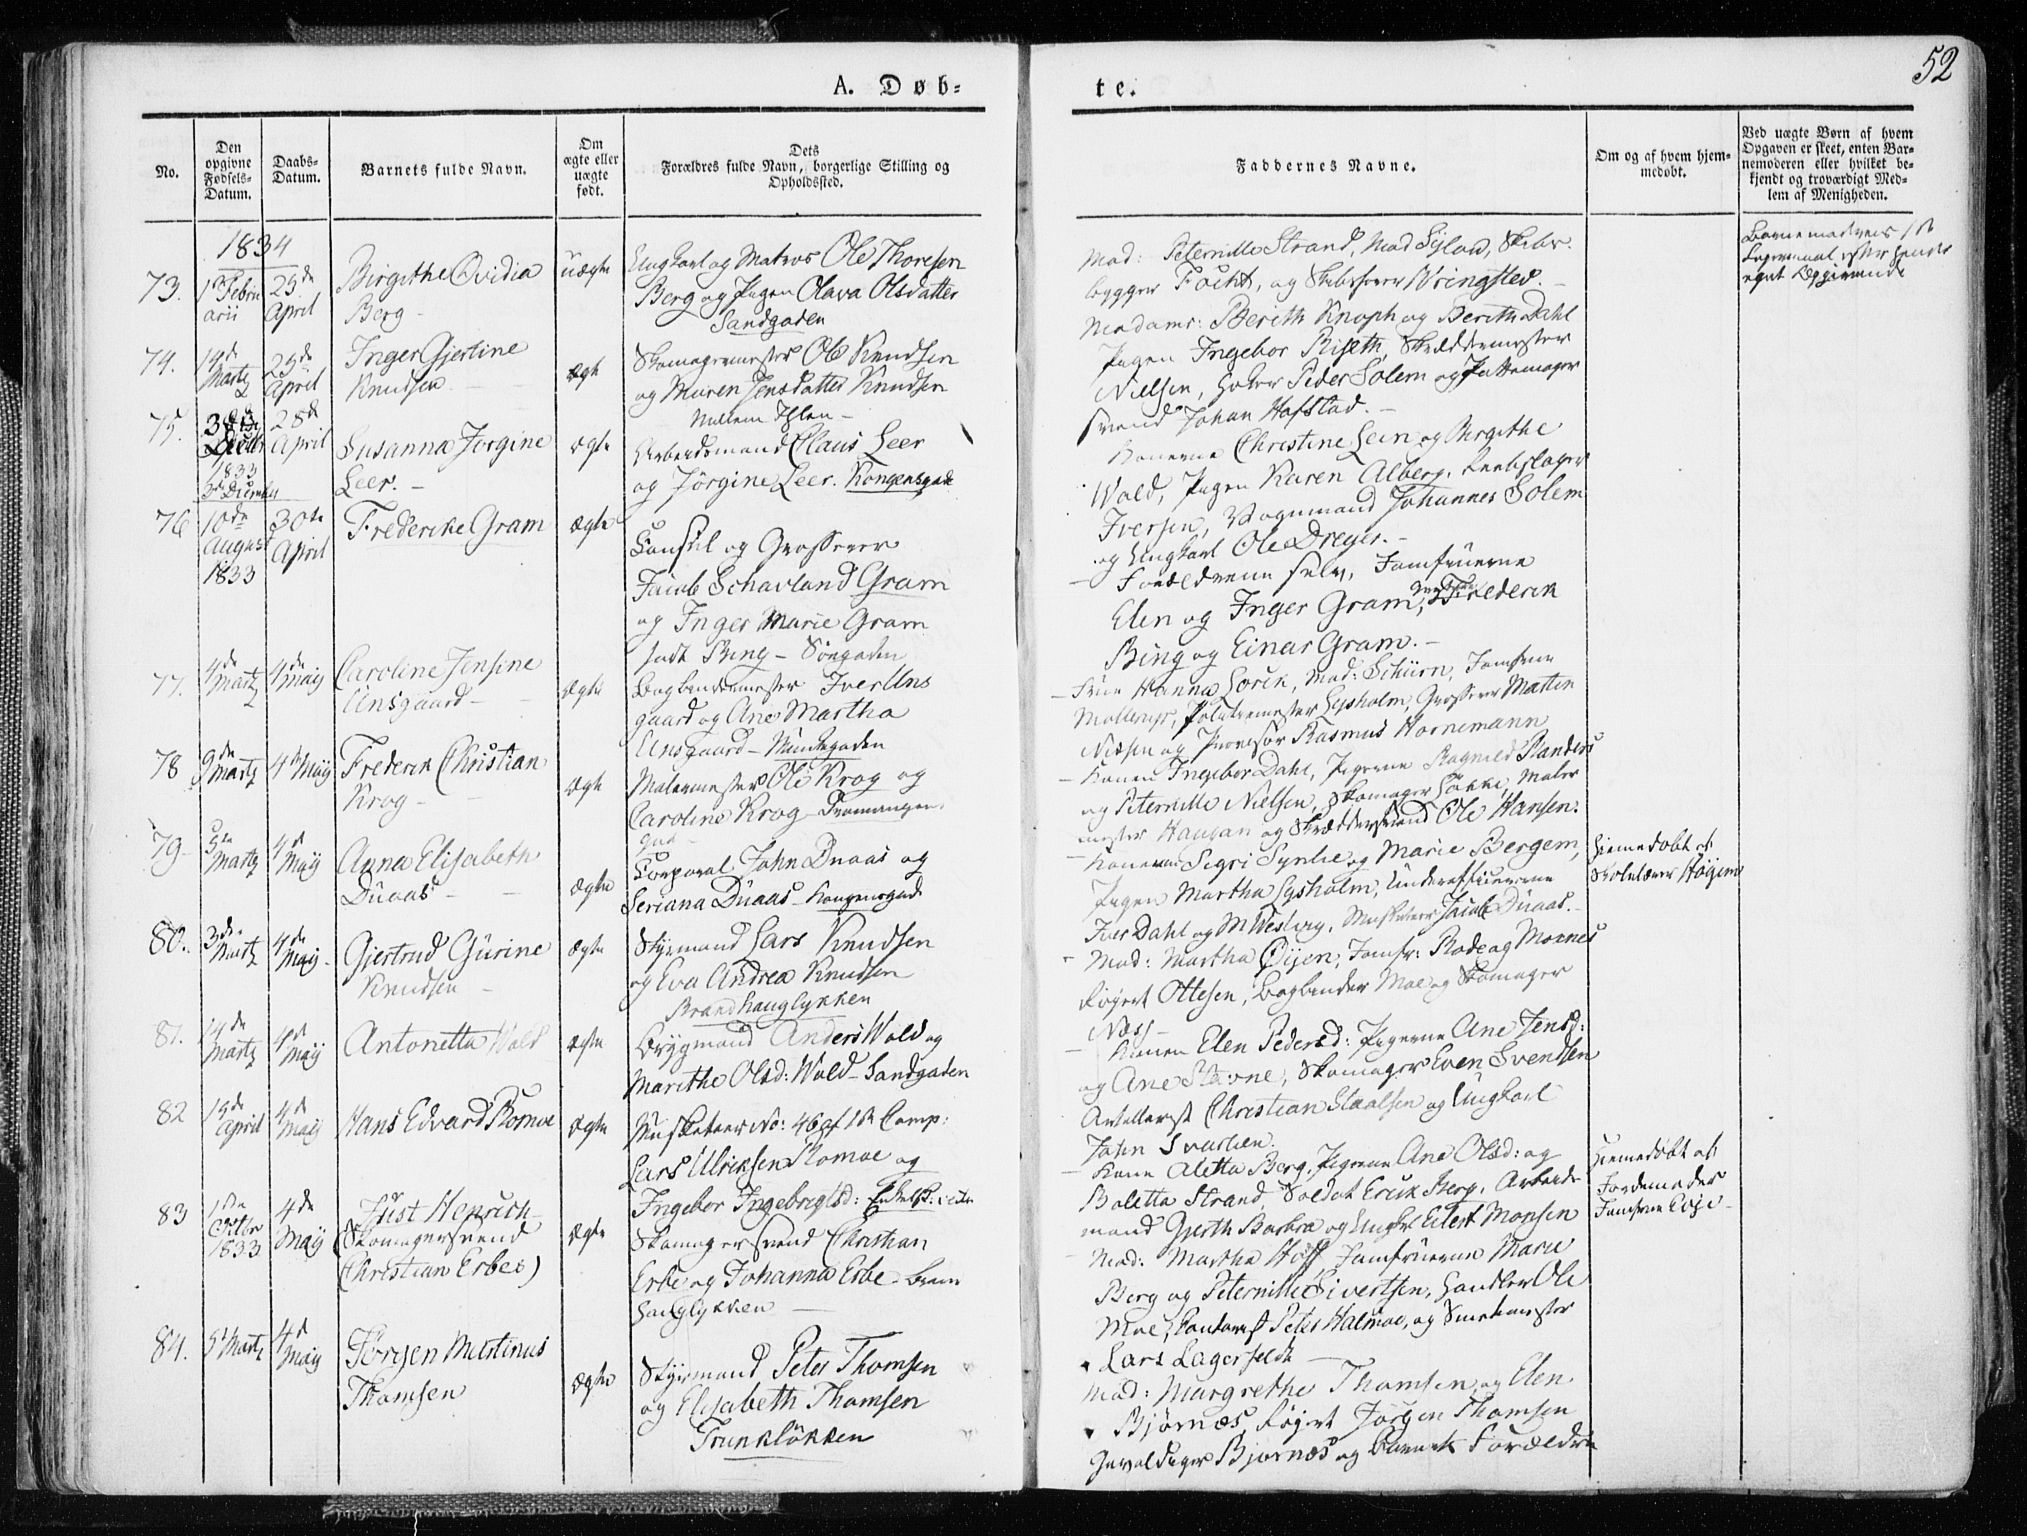 52
A. Døb=
te.
No.
Den opgivne Fødsels-Datum.
Daabs-Datum.
Barnets fulde Navn.
Om ægte eller uægte født.
Dets Forældres fulde Navn, borgerlige Stilling og Opholdssted.
Faddernes Navne.
Om og af hvem hjemmedøbt.
Ved uægte Børn af hvem Opgaven er skeet, enten Barnemoderen eller hvilket bekjendt og troværdigt Medlem af Menigheden.
1834
73.
1 Febru
arii
25de
April
Birgithe Ovidia
Berg
uægte
Ungkarl og Matros Ole Thoresen
Berg og Pigen Olava Olsdatter
Sandgaden
Mad: Peternille Strand, Mad
bygger Focht, og Skibsfører Wringsted.
eget Opgivende
74.
14de
Martz
25de
April
Inger Gjertine
Knudsen
ægte
Skomagermester Ole Knudsen
og Maren Jensdatter Knudsen
Madams: Berith Knoph og Berith Dahl
Pigen Ingebor Riseth, Skreddermester
Nielsen, Peder Solem og Pottemager
svend Johan Hofstad.
75.
1833
28de
April
Susanna Jørgine
Leer.
ægte
Arbeidsmand Claus Leer
og Jørgine Leer. Kongensgade
Konerne Christine Lein og Birgithe
Wold, Pigen Karen Alberg, Reebslager
Iversen, Vognmand Johannes Solem
og Ungkarl Ole Dreyer.
76
10de
August
1833
30te
April
Frederike Gram
ægte
Consul og Grosserer
Jacob Schavland Gram
og Inger Marie Gram
født Bing - Søegaden
Forældrene selv, Jomfruerne
Elen og Inger Gram, Frederik
Bing og Einar Gram.
77.
4de
Martz
4de
May
Caroline Jensine
Unsgaard
ægte
Bogbindermester Iver Uns
gaard og Ane Martha
Unsgaard - Munkegaden
Frue Hanna Lorck, Mad: Schiørn, Jomfrue
Mollerup, Politiemester Lysholm, Grosserer Martin
Nissen og Provisor Rasmus Hornemann
78
9de
Martz
4de May
Frederik Christian
Krog
ægte
Malermester Ole Krog og
Caroline Krog
Konen Ingebor Dahl, Pigerne Ragnild Randers
og Peternille Nielsen, Skomager Løkke, Maler
mester Haugan og Skreddersvend Ole Hansen.
79
5te
Martz
4de
May
Anna Elisabeth
Duaas
ægte
Corporal John Duaas og
Seriana Duaas Kongensgade
Konerne Sigri Synlie og Marie Bergem,
Pigen Martha Lysholm, Underofficererne
Iver Dahl og M Westvig, Musketeer Jacob Duaas.
Hiemedøbt af
Skolelærer Høyem
80.
3de
Martz
4de
May
Gjertrud Gurine
Knudsen
ægte
Styrmand Lars Knudsen
og Eva Andrea Knudsen
Brandhauglykken
Mad: Martha Øijen, Jomfr: Rode og Moxnes
Røgert Ottesen, Bogbinder Moe og Skomager
Næss
81.
14de
Martz
4de
May
Antonetta Wold
ægte
Brygmand Anders Wold og
Marithe Olsd: Wold - Sandgaden
Konen Elen Pedersd: Pigerne Ane Jensd:
og Ane Stavne, Skomager Even Svendsen
Artillerist Christian Staalsen og Ungkarl
John Svartlien.
82
15de
April
4de
May
Hans Edvard Romoe
ægte
Musketeer No: 46 af 1ste Comp:
Lars Ulriksen Romoe og
Ingebor Ingebrigtsd:
Kone Aletta Berg, Pigerne Ane Olsd: og
Boletta Strand, Soldat Erik Berg, Arbeids
mand Gjerth Barbra og Ungkr Eilert Monsen
Hiemedøbt af
Jordemoder
Jomfrue
83
1ste
Octbr
1833
4de
May
Just Henrich
(Skomagersvend
Christian Erbes)
ægte
Skomagersvend Christian
Erbe og Johanna Erbe - Bran
hauglykken
Mad: Martha Hoff, Jomfruerne Marie
Berg og Peternille Sivertsen, Handler Ole
Moe, Contorist Peter Halmoe, og Smedemester
Lars Lagerfeldt
84.
5te Martz
4de
May
Jørgen Martinus
Thomsen
ægte
Styrmand Peter Thomsen
og Elisabeth Thomsen
Trunkløkken
Mad: Margrethe Thomsen og Elen
Bjørnæs, Røgert Jørgen Thomsen
Bjørnæs og Barnets Forældre